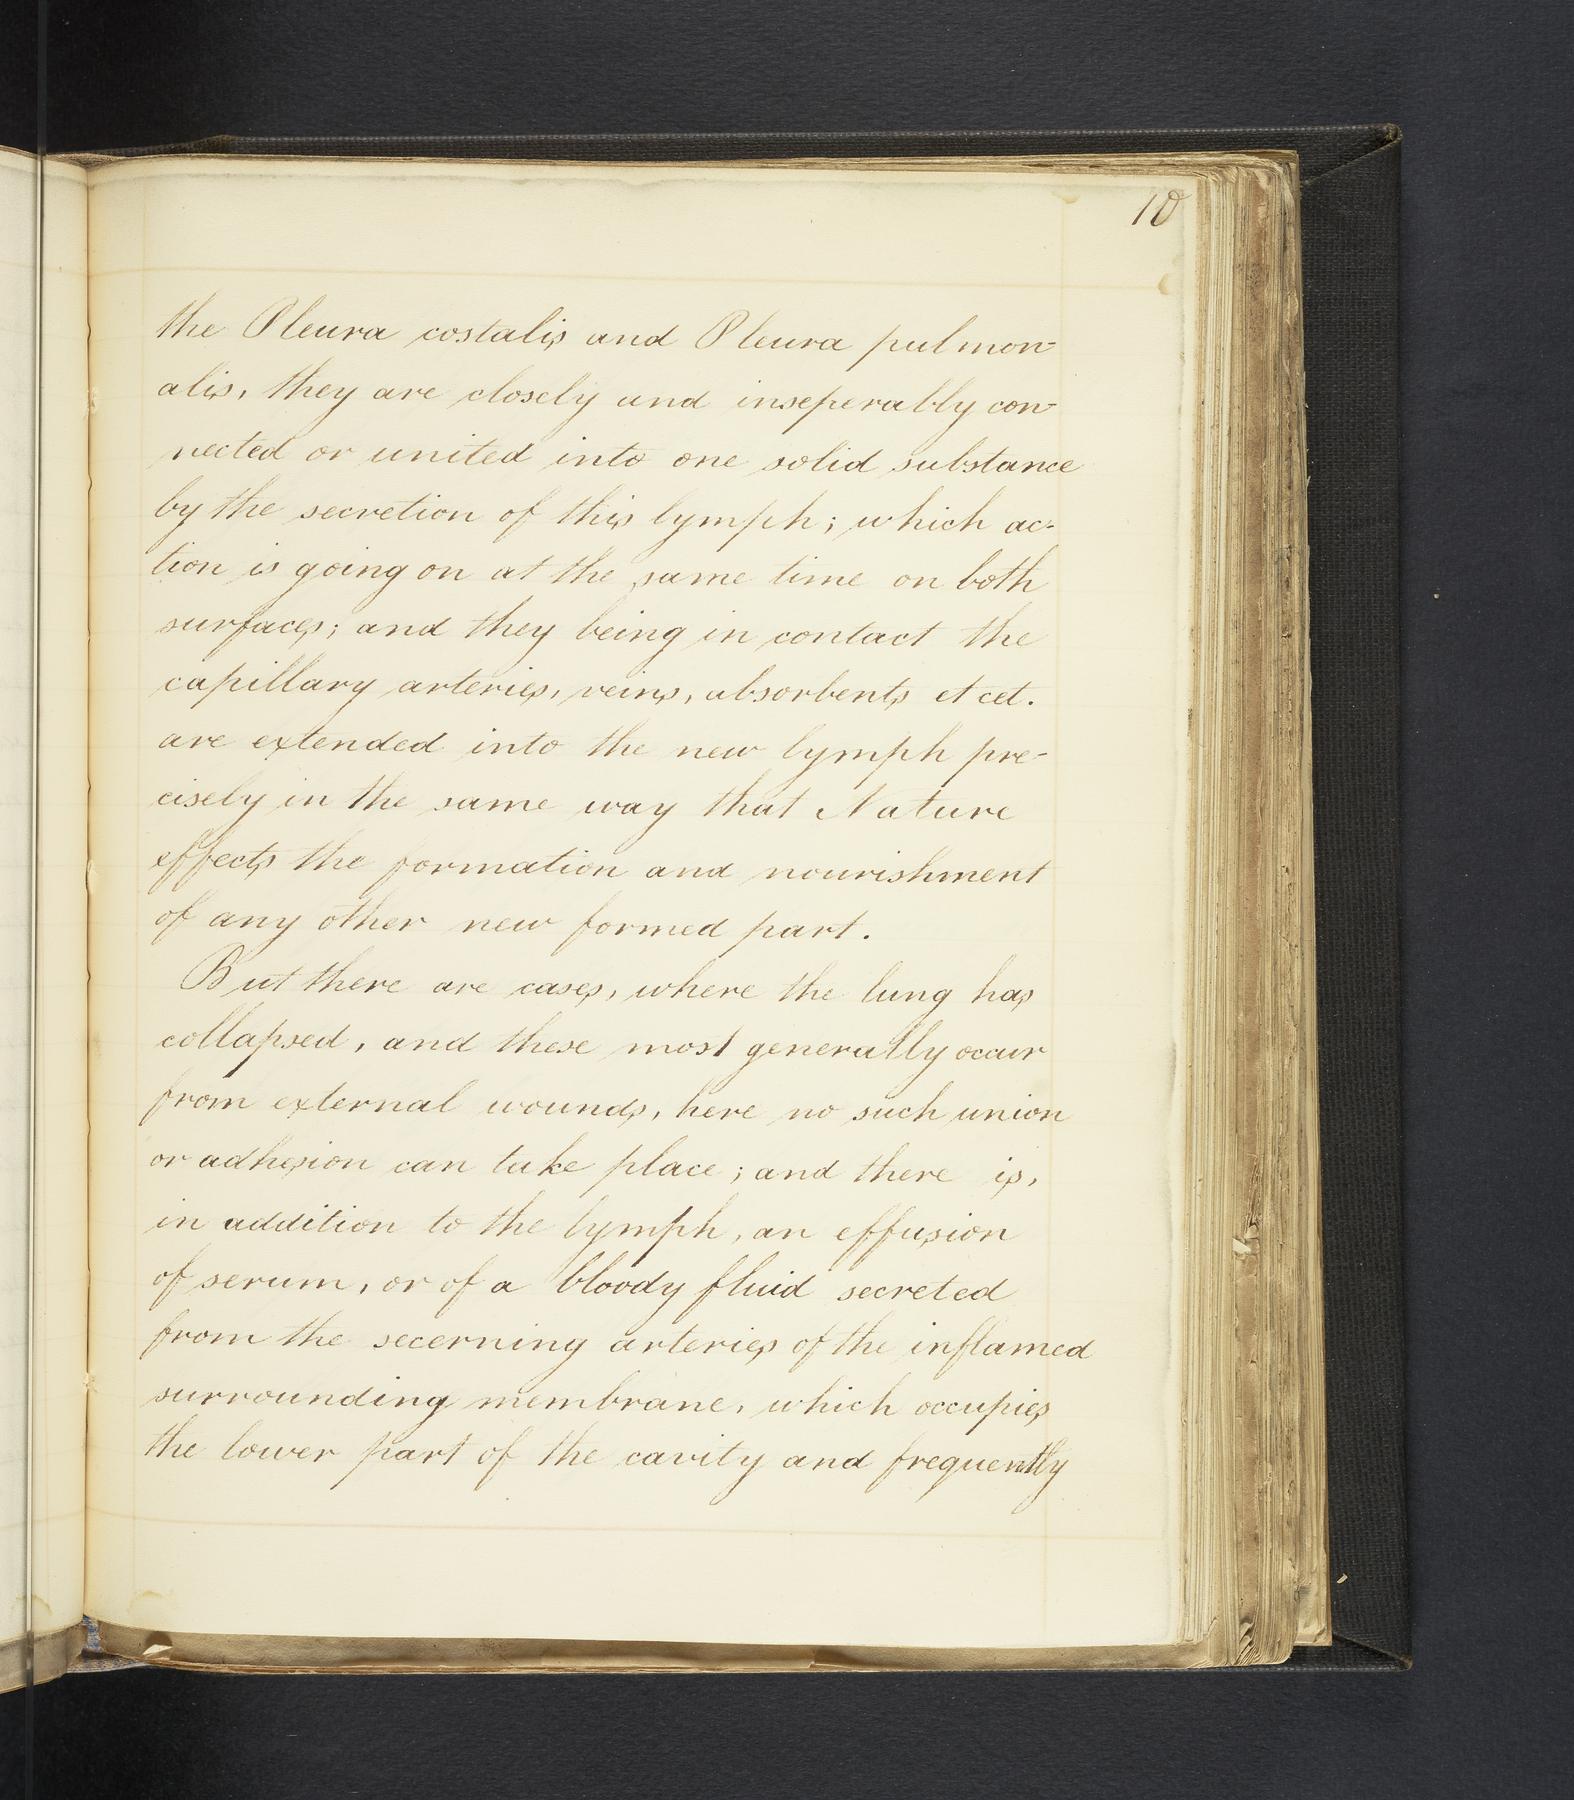 10
the Pleura costalis and Pleura pulmon-
alis, they are closely and inseperably con-
nected or united into one solid substance
by the secretion of this lymph; which ac-
tion is going on at the same time on both
surfaces; and they being in contact the
capillary arteries, veins, absorbents et cet.
are extended into the new lymph pre-
cisely in the same way that Nature
effects the formation and nourishment
of any other new formed part.
But there are cases, where the lung has
collapsed, and these most generally occur
from external wounds, here no such union
or adhesion can take place; and there is,
in addition to the lymph, an effusion
of serum, or of a bloody fluid secreted
from the secerning arteries of the inflamed
surrounding membrane, which occupies
the lower part of the cavity and frequently